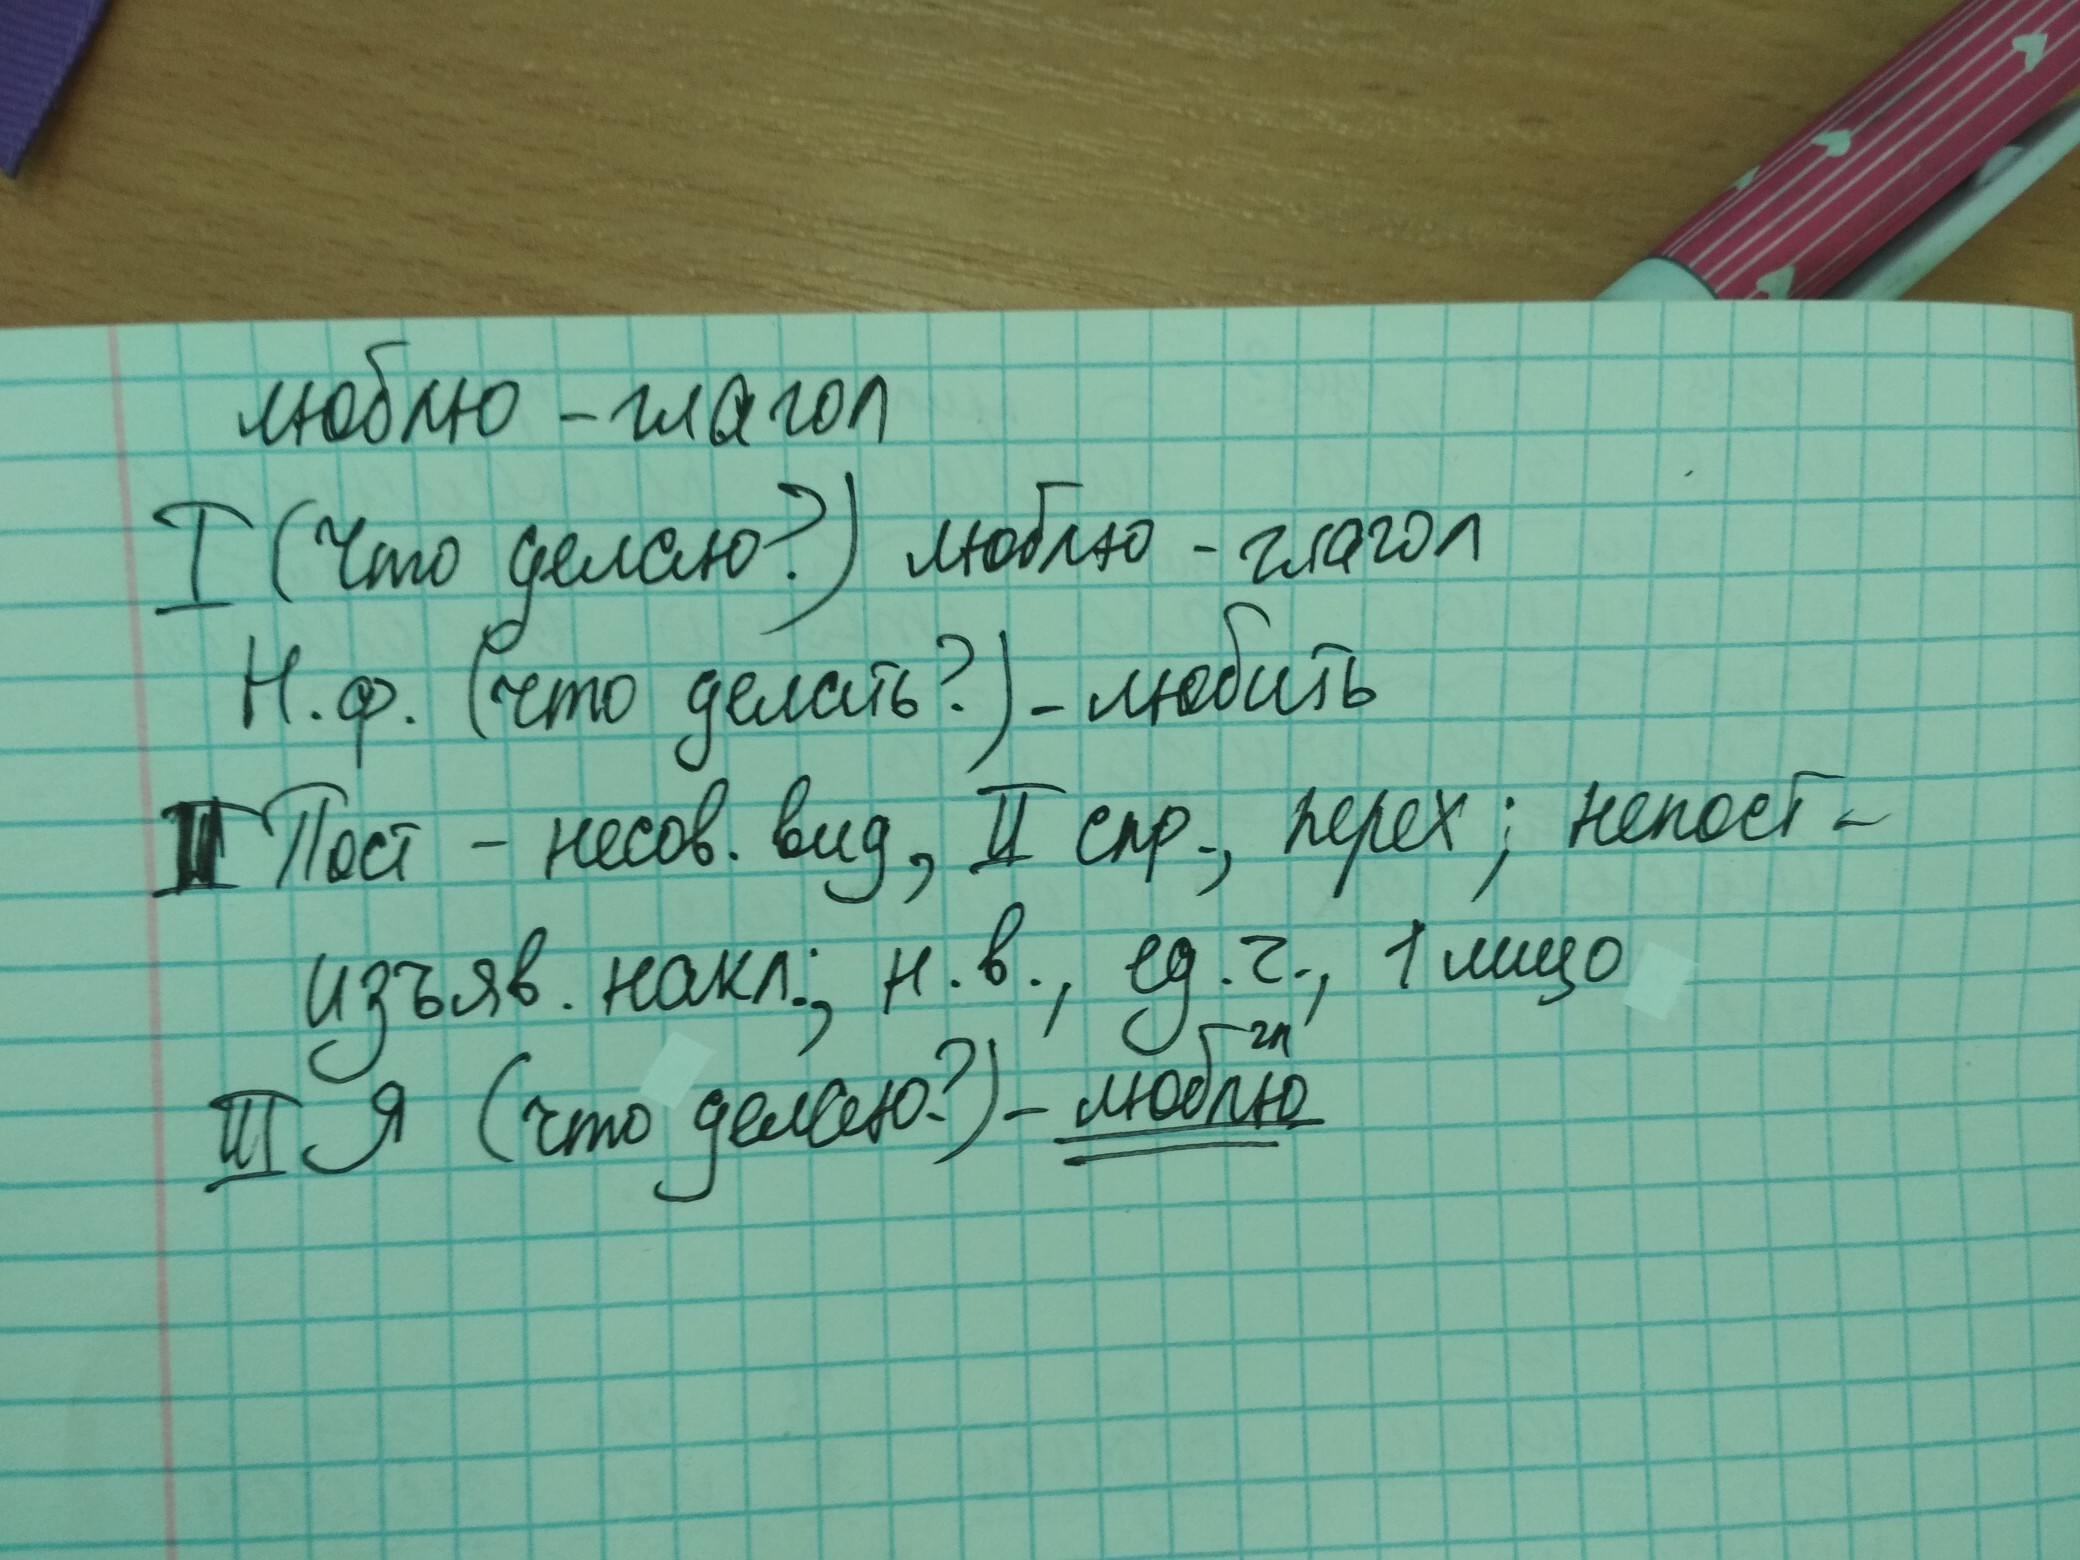 люблю - глагол
I (Что делаю?) люблю - глагол
Н.ф. (что делать?) - любить
II Пост - несов. вид, II спр., перех; непост -
изъяв. накл.; н.в., ед.ч., 1 лицо
III Я (что делаю?) - люблю гл